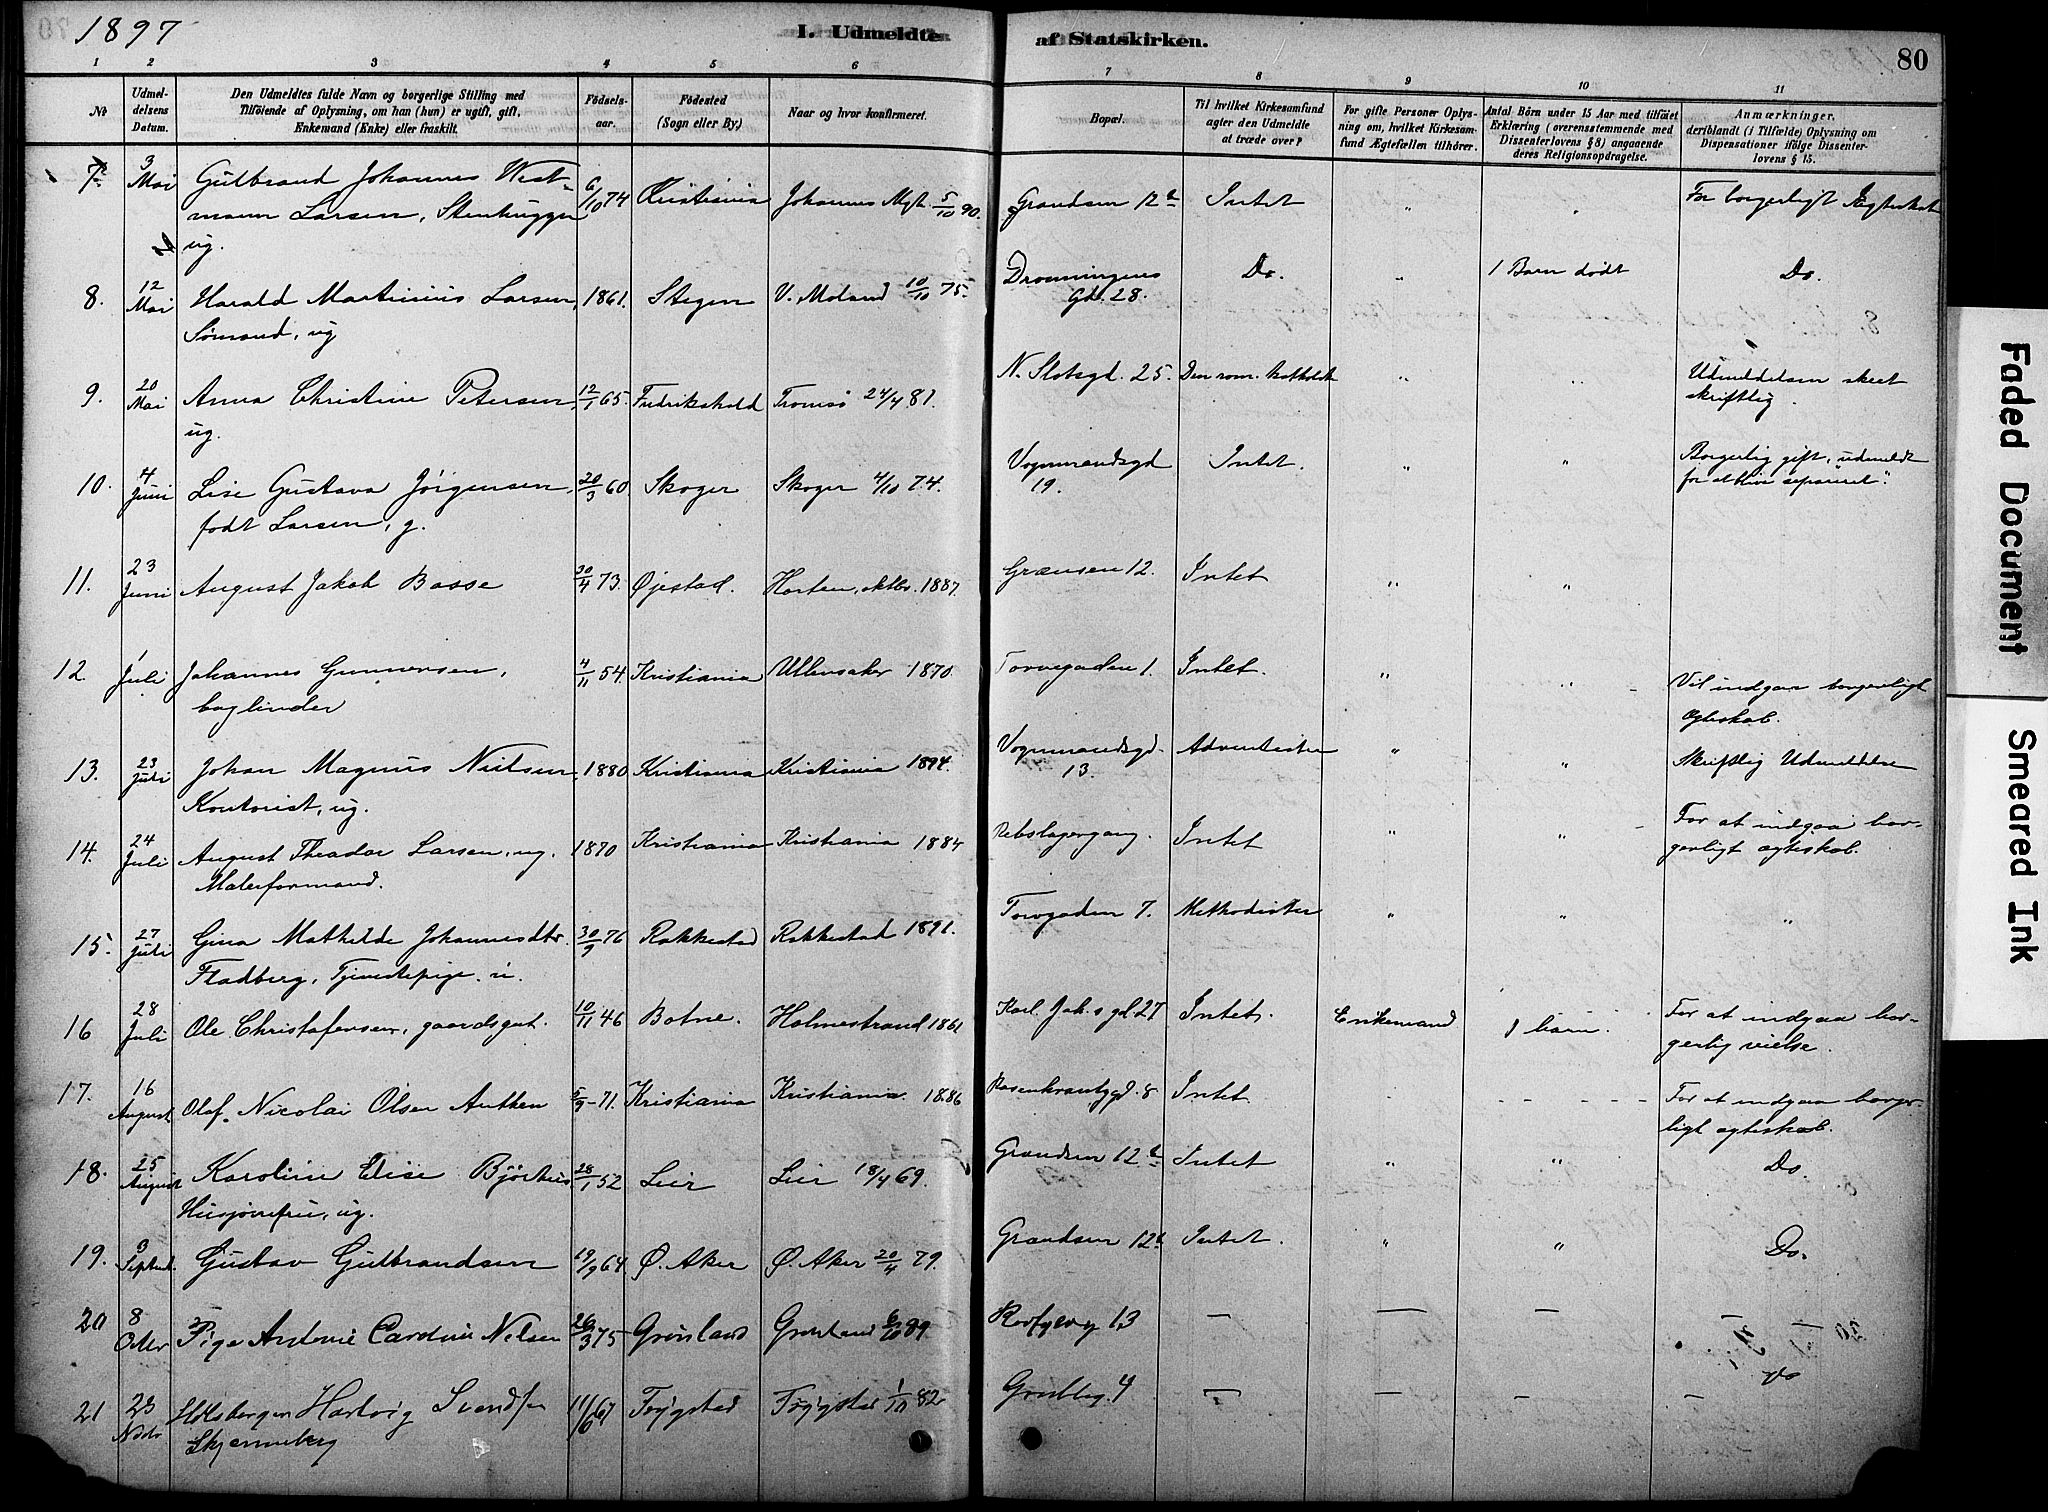 1897
I. Udmeldte af Statskirken.
80
1 2 3 4 5 6 7 8 9 10 11
No
Udmeldelsens Datum.
Den Udmeldtes fulde Navn og borgerlige Stilling med
Tilføiende af Oplysning, om han (hun) er ugift, gift,
Enkemand (Enke) eller fraskilt.
Fødselsaar.
Fødested
(Sogn eller By.)
Naar og hvor konfirmeret.
Bopæl.
Til hvilket Kirkesamfund
agter den Udmeldte
at træde over?
For gifte Personer Oplysning om, hvilket Kirkesamfund Ægtefællen tilhører.
Antal Børn under 15 Aar med tilføiet
Erklæring (overensstemmende med
Dissenterlovens § 8) angaaende
deres Religionsopdragelse.
Anmærkninger,
deriblandt (i Tilfælde) Oplysning om
Dispensationer ifølge Dissenterlovens § 15.
7. 3 Mai Gulbrand Johannes West-
mann Larsen, Stenhugger
ug. 6/10 74 Kristiania Johannes Mgh. 5/10 90. Grændsen 12b Intet " " For borgerligt Ægteskab
8. 12 Mai Harald Martinius Larsen,
Sømand, ug 1861. Stegen V. Moland 10/10 75. Dronningens
Gd. 28. Do. " 1 Barn dødt Do.
9. 20 Mai Anna Christine Petersen,
ug. 12/1 65. Fredrikshald Tromsø 24/4 81. N. Slotsgd. 25. Den rom. katholsk " " Udmeldelsen skeet
skriftlig.
10. 4 Juni Lise Gustava Jörgensen,
født Larsen, g. 20/3 60 Skoger Skoger 4/10 74. Vognmandsgd
19. Intet. " " Borgerlig gift, udmeldt
for at blive "separeret".
11. 23 Juni August Jakob Basse 30/4 73. Øjestad. Horten, oktbr. 1887. Grænsen 12. Intet " "
12. 1 Juli Johannes Gunnersen,
bogbinder 4/11 54. Kristiania Ullensaker 1870. Torvegaden 1. Intet. " " Vil indgaa borgerligt
Ægteskab.
13. 23 Juli Johan Magnus Nielsen
Kontorist, ug. 1880 Kristiania Kristiania 1894. Vognmandsgd.
13. Adventister " " Skriftlig Udmeldelse
14. 24 Juli August Theodor Larsen, ug.
Malerformand. 1870 Kristiania Kristiania 1884 Rebslagergang. Intet " " For at indgaa bor-
gerligt ægteskab.
15. 27 Juli Gina Mathilde Johannesdtr.
Fladberg, Tjenestepige. u. 30/9 76 Rakkestad Rakkestad 1891. Torvgaden 7. Methodister " " "
16 28 Juli Ole Christofersen, gaardsgut. 10/11 46 Botne. Holmestrand 1861 Karl Joh.s gd. 27 Intet. Enkemand 1 barn. For at indgaa bor-
gerlig vielse.
17. 16 August Olaf Nicolai Olsen Anthen 5/9 71. Kristiania Kristiania. 1886 Rosenkrantzgd. 8 Intet. For at indgaa borger-
ligt ægteskab.
18. 25 August Karoline Elise Björhus
Husjomfru, ug. 28/1 52 Lier Lier 18/4 69. Grændsen 12b Intet " " Do
19. 3 Septbr. Gustav Gulbrandsen 19/9 64. Ø. Aker Ø. Aker 20/4 79. Grændsen 12b Intet. " " Do.
20 8 Octbr Pige Antonie Caroline Nilsen 26/3 75 Grønland Grønland 6/10 89. 13 — — — —
21 23 Novbr Hartvig Svendsen
Skjenneberg 11/6 67 1/10 82 4 — — — do
Faded Document
Smeared Ink